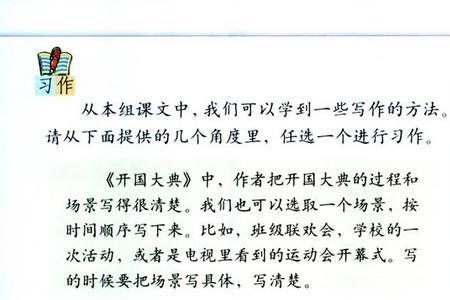 习作
从本组课文中，我们可以学到一些写作的方法。
请从下面提供的几个角度里，任选一个进行习作。
《开国大典》中，作者把开国大典的过程和
场景写得很清楚。我们也可以选取一个场景，按
时间顺序写下来。比如，班级联欢会，学校的一
次活动，或者是电视里看到的运动会开幕式。写
的时候要把场景写具体，写清楚。